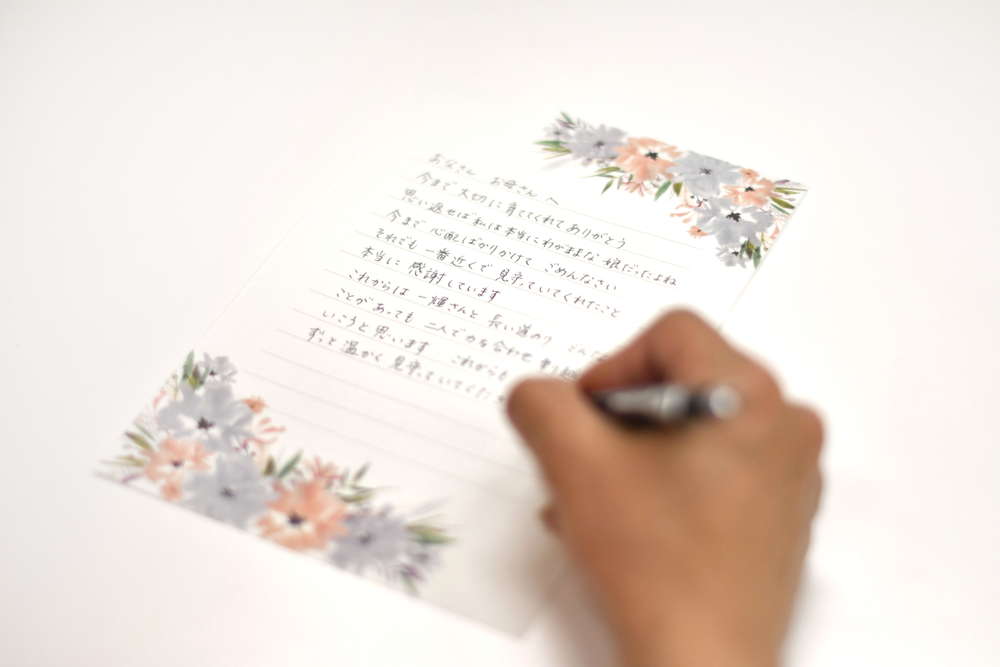 お父さん お母さん へ
今まで大切に育ててくれてありがとう
思い返せば私は本当にわがままな娘だったよね
今まで 心配ばかりかけて ごめんなさい
それでも 一番近くで 見守っていてくれたこと
本当に 感謝しています
これからは 一輝さんと 長い道のり どんな
ことが あっても 二人で力を合わせ
いこうと 思います これからも
ずっと 温かく 見守っていてくださ